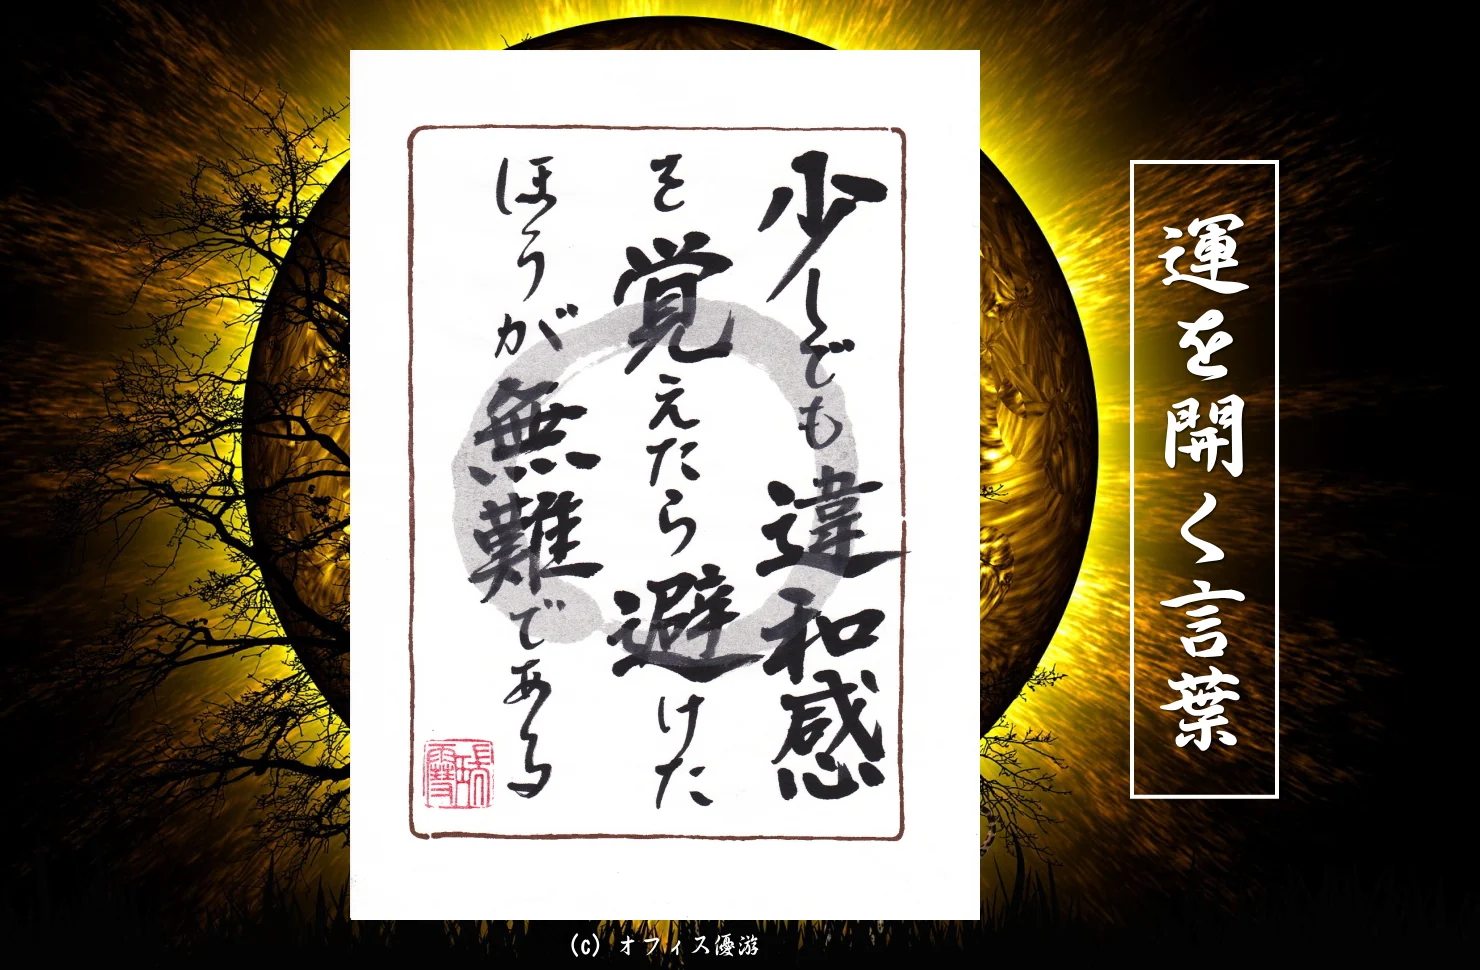 運を開く言葉
少しでも違和感
を覚えたら避けた
ほうが無難である
(c) オフィス優游